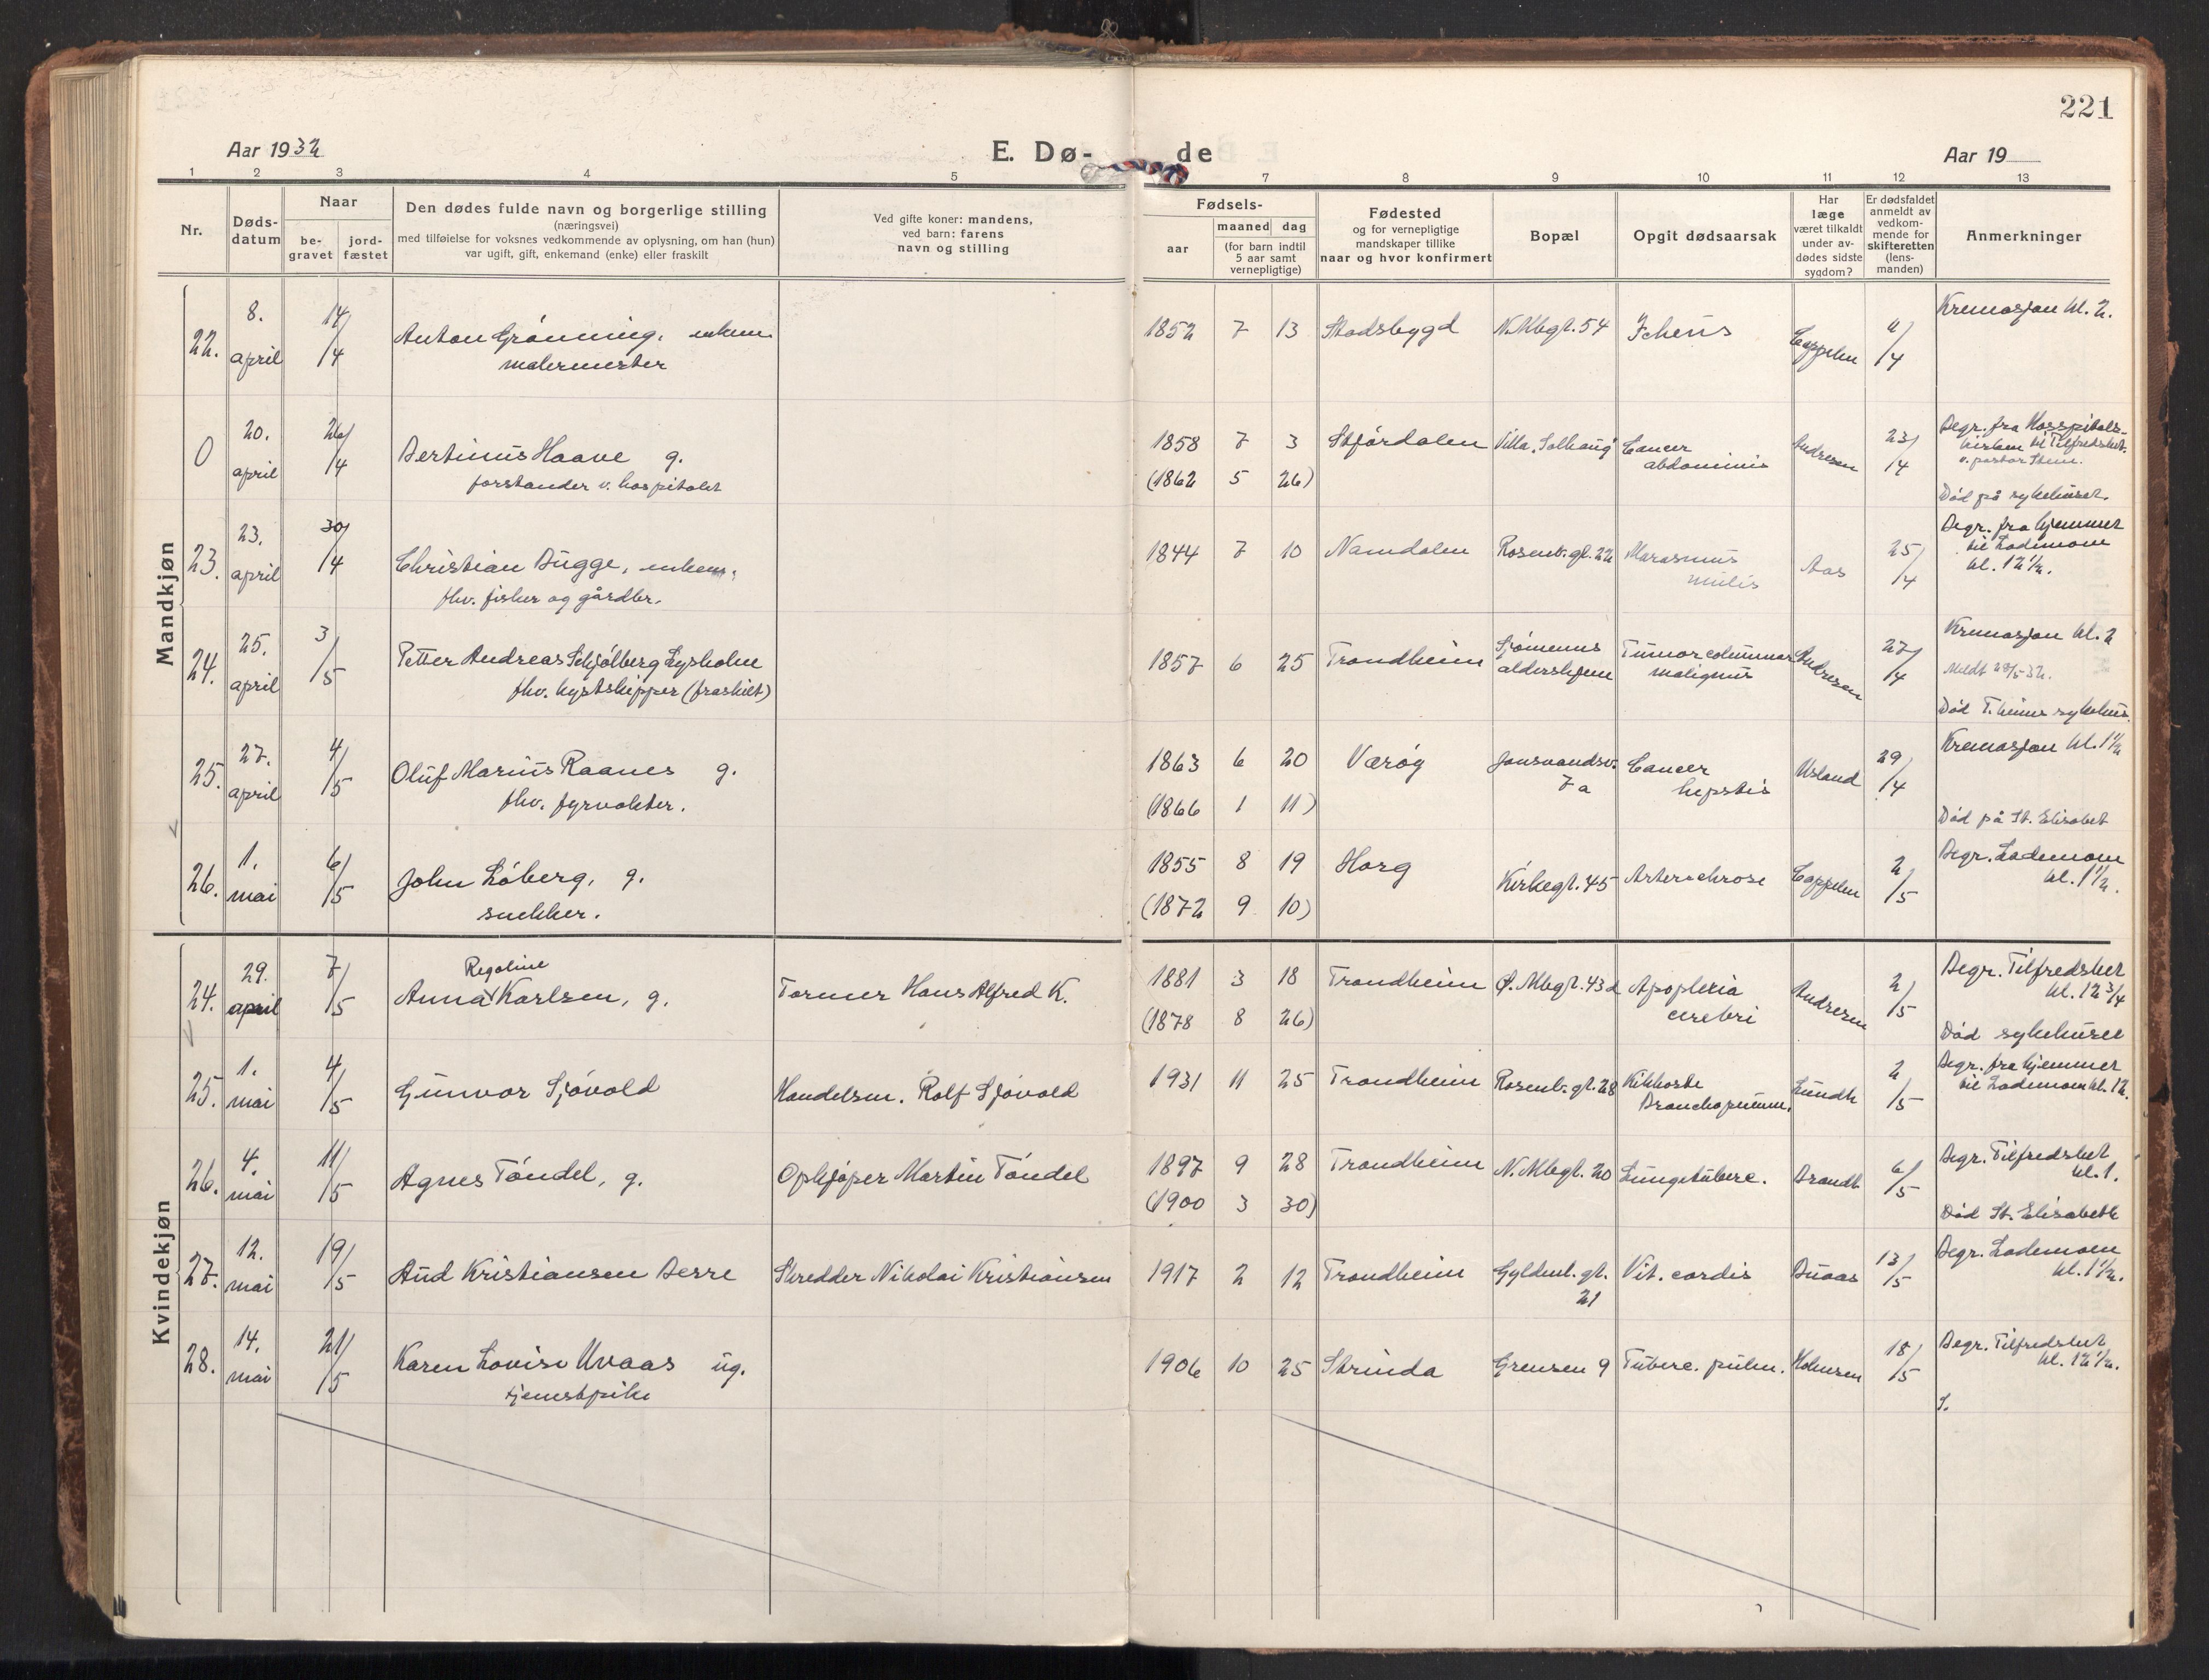 221
Aar 1932
E. Dø- de
Aar 19
1 2 3 4 5 7 8 9 10 11 12 13
Nr.
Døds-
datum
Naar
be-
gravet
jord-
fæstet
Den dødes fulde navn og borgerlige stilling
(næringsvei)
med tilføielse for voksnes vedkommende av oplysning, om han (hun)
var ugift, gift, enkemand (enke) eller fraskilt
Ved gifte koner: mandens,
ved barn: farens
navn og stilling
Fødsels-
aar
maaned dag
(for barn indtil
5 aar samt
vernepligtige)
Fødested
og for vernepligtige
mandskaper tillike
naar og hvor konfirmert
Bopæl
Opgit dødsaarsak
Har
læge
været tilkaldt
under av-
dødes sidste
sygdom?
Er dødsfaldet
anmeldt av
vedkom-
mende for
skifteretten
(lens-
manden)
Anmerkninger
Mandkjøn
22. 8. april 14/4 Anton Grønning, enkem.
malermester
1852 7 13 Stadsbygd N. Mbgt. 54 Icherus Cappelen 11/4 Kremasjon kl. 2.
0 20. april 26/4 Bertinus Haave g.
forstander v. hospitalet
1858 7 3 Stjørdalen Villa "Solhaug" Cancer
abdominis
Andresen 23/4 Begr. fra Hosspitals-
kirken til Tilfredshet.
v. pastor Stene.
(1862 5 26)
Død på sykehuset.
23. 23. april 30/4 Christian Bugge, enkem.
fhv. fisker og gårdbr.
1844 7 10 Namdalen Rosenb. gt. 22 Marasmus
Aas 25/4 Begr. fra hjemmet
til Lademoen
kl. 12 1/2.
24. 25. april 3/5 Petter Andreas Schjølberg Lysholm
fhv. kystskipper (fraskilt)
1857 6 25 Trondheim Sjømenns
aldershjem
Tumor columnar
malignus
Andresen 27/4 Kremasjon kl. 2
Meldt 28/5-32.
Død T.heims sykehus.
25. 27. april 4/5 Oluf Marius Raanes g.
fhv. fyrvokter.
1863 6 20 Værøy Jonsvandsv.
7a
Cancer
hepatis
Usland 29/4 Kremasjon kl. 1 1/2
(1866 1 11)
Død på St. Elisabet
26. 1. mai 6/5 John Løberg, g.
snekker.
1855 8 19 Horg Kirkegt. 45 Artersclerose Cappelen 2/5 Begr. Lademoen
kl. 1 1/2.
(1872 9 10)
Kvindekjøn
24. 29. april 7/5 Anna Regoline Karlsen, g. Former Hans Alfred K.
1881 3 18 Trondheim Ø. Mbgt. 43d Apoplexia
cerebri
Andresen 2/5 Begr. Tilfredshet
kl. 12 3/4
(1878 8 26)
Død sykehuset
25. 1. mai 4/5 Gunvor Sjøvold Handelsm. Rolf Sjøvold
1931 11 25 Trondheim Rosenb. gt. 28 Kikhoste
Bronchopneum.
Lundh 2/5 Begr. fra hjemmet
til Lademoen kl. 12.
26. 4. mai 11/5 Agnes Tøndel, g. Opkjøper Martin Tøndel
1897 9 28 Trondheim N. Mbgt. 20 Lungetuberc. Brandt 6/5 Begr. Tilfredshet
kl. 1.
(1900 3 30)
Død St. Elisabeth
27. 12. mai 19/5 Aud Kristiansen Berre Skredder Nikolai Kristiansen
1917 2 12 Trondheim Gyldenl. gt.
21
Vit. cordis Buaas 13/5 Begr. Lademoen
kl. 1 1/2.
28. 14. mai 21/5 Karen Lovise Uvaas ug.
tjenestpike
1906 10 25 Strinda Grensen 9 Tuberc. pulm. Holmsen 18/5 Begr. Tilfredshet
kl. 12 1/2.
S.